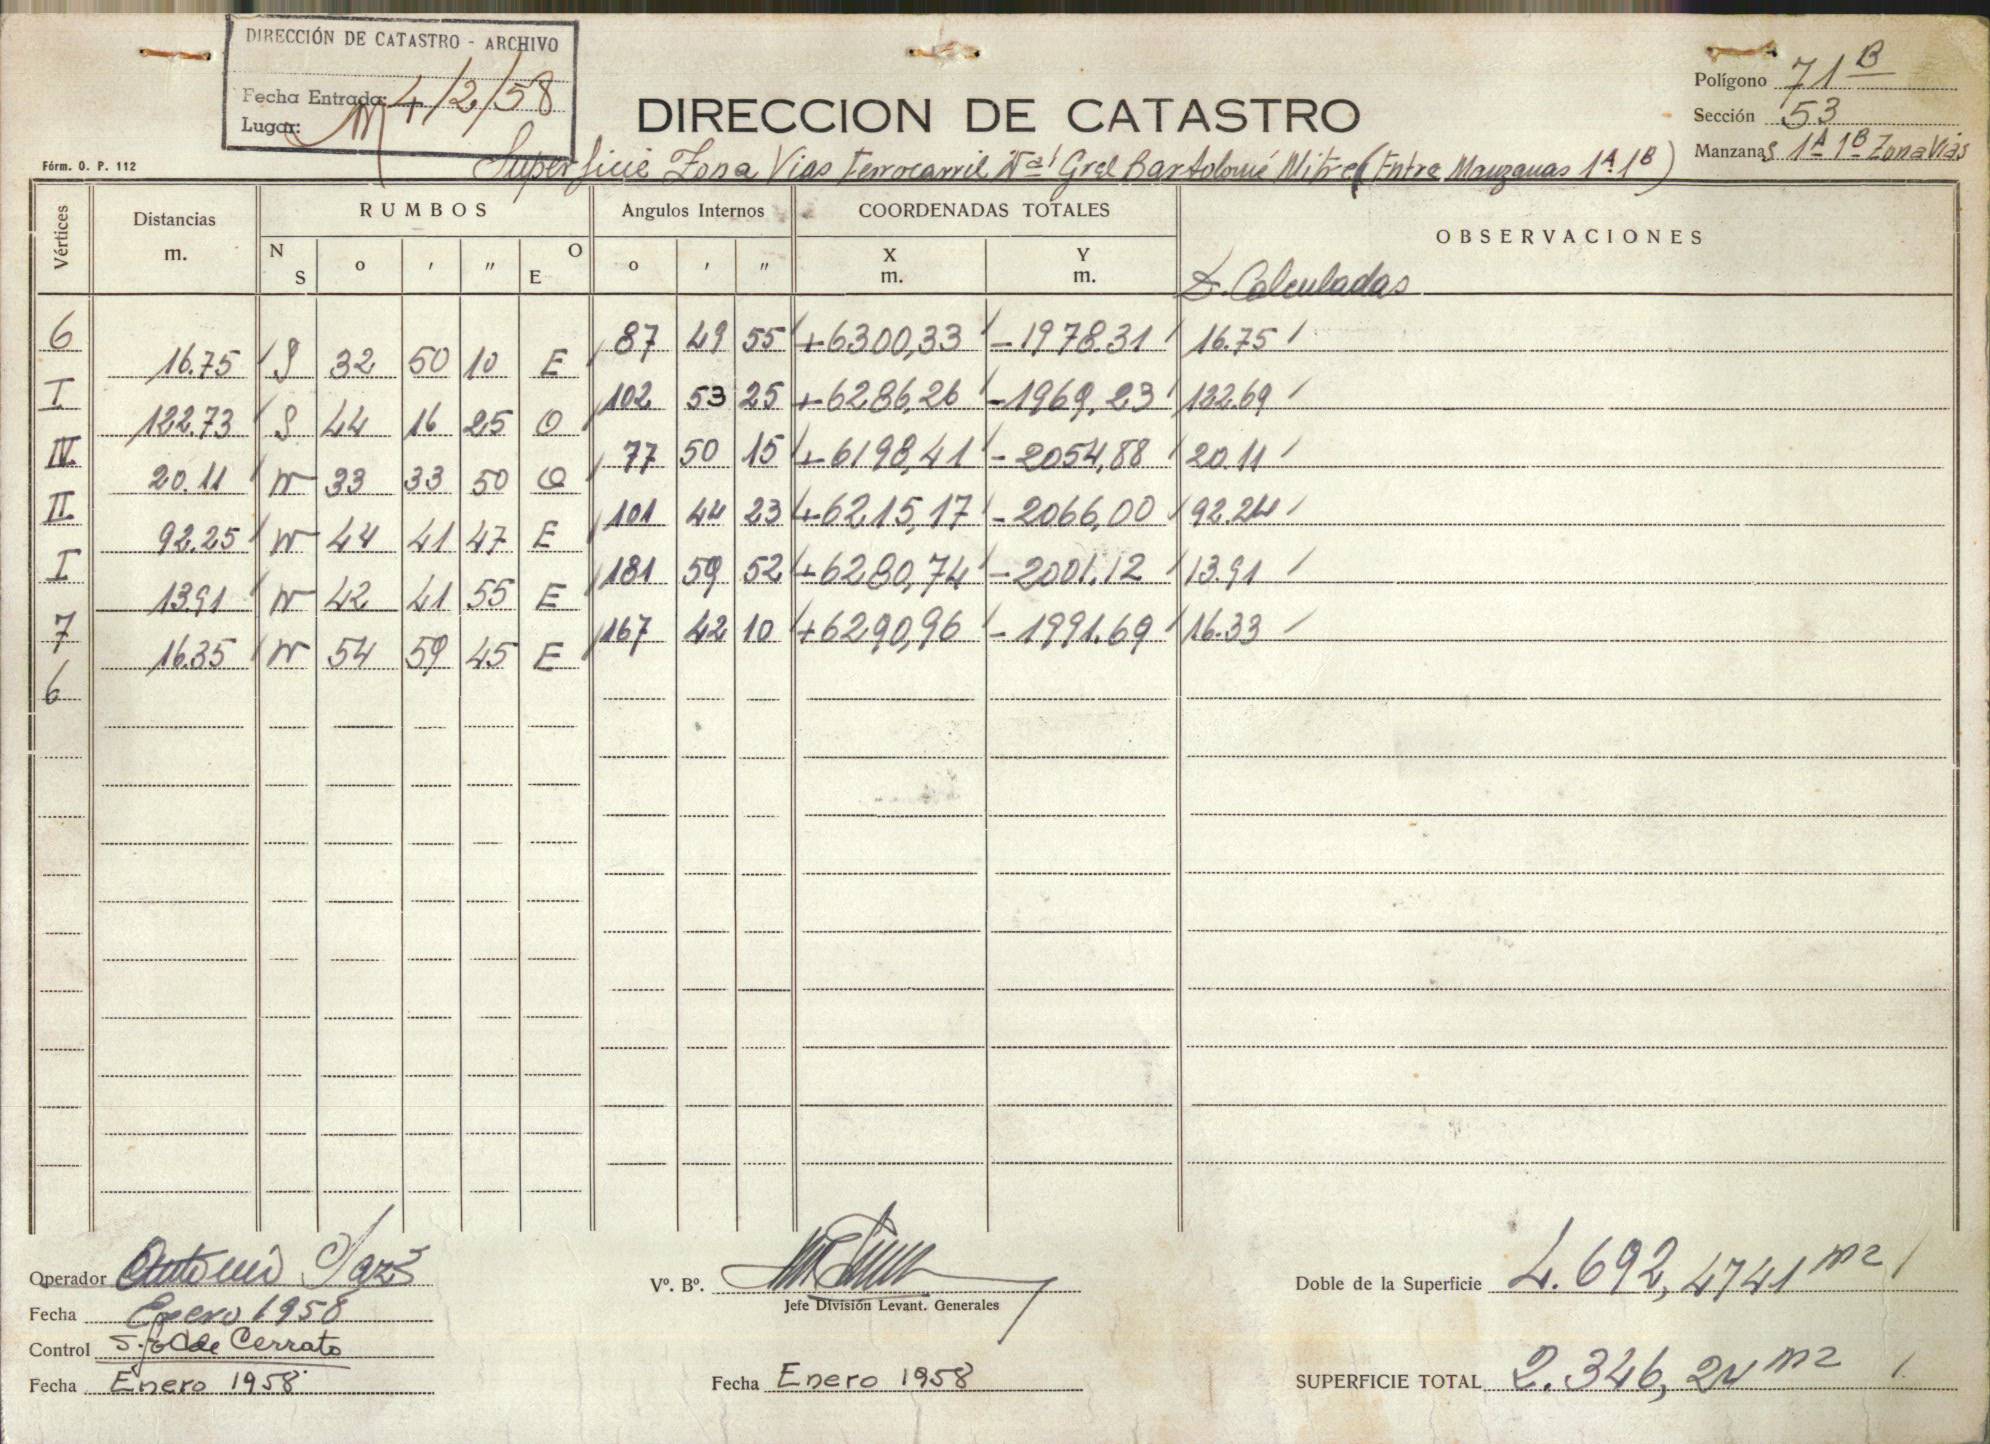 DIRECCIÓN DE CATASTRO - ARCHIVO
Fecha Entrada: 4/2/58
Lugar:
Fórm. O. P. 112
DIRECCION DE CATASTRO
Polígono 71 B
Sección 53
Manzanas 1A 1B Zona Vias
Superficie Zona Vias Ferrocarril Nal Gral Bartolomé Mitre (Entre Manzanas 1A 1B)
Vértices Distancias m. RUMBOS Angulos Internos COORDENADAS TOTALES OBSERVACIONES
N S o ' " O E o ' " X m. Y m. D. Calculadas
6 87 49 55 +6300,33 -1978.31 16.75
16.75 S 32 50 10 E
I 102 53 25 +6286,26 -1969,23 122.69
122.73 S 44 16 25 O
IV 77 50 15 +6198,41 -2054,88 20.11
20.11 N 33 33 50 O
II 101 44 23 +6215,17 -2066,00 92.24
92.25 N 44 41 47 E
I 181 59 52 +6280,74 -2001.12 13.91
13.91 N 42 41 55 E
7 167 42 10 +6290,96 -1991.69 16.33
16.35 N 54 59 45 E
6
Operador
Fecha Enero 1958
Control de Cerrato
Fecha Enero 1958
Vº. Bº.
Jefe División Levant. Generales
Fecha Enero 1958
Doble de la Superficie 4.692,4741 m2
SUPERFICIE TOTAL 2.346,24 m2